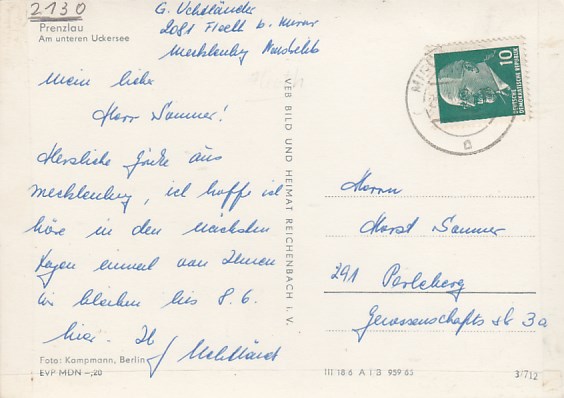 2130
Prenzlau
Am unteren Uckersee
G.
2081 Fleeth b. Mirow
Mecklenbg
Mein lieber
Herr Sommer!
Herzliche Grüße aus
Mecklenburg, ich hoffe ich
höre in den nächsten
Tagen einmal von Ihnen
Wir bleiben bis 8. 6.
hier. Ih
Foto: Kampmann, Berlin
EVP MDN –,20
VEB BILD UND HEIMAT REICHENBACH i. V.
10
DEUTSCHE
DEMOKRATISCHE REPUBLIK
Herrn
Horst Sommer
291 Perleberg
Genossenschafts str 3a
III 18 6 A 1/B 959 65
3/712